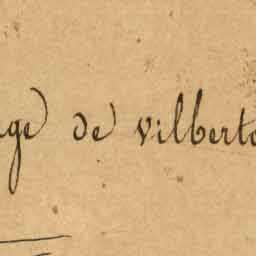 age de vilberto